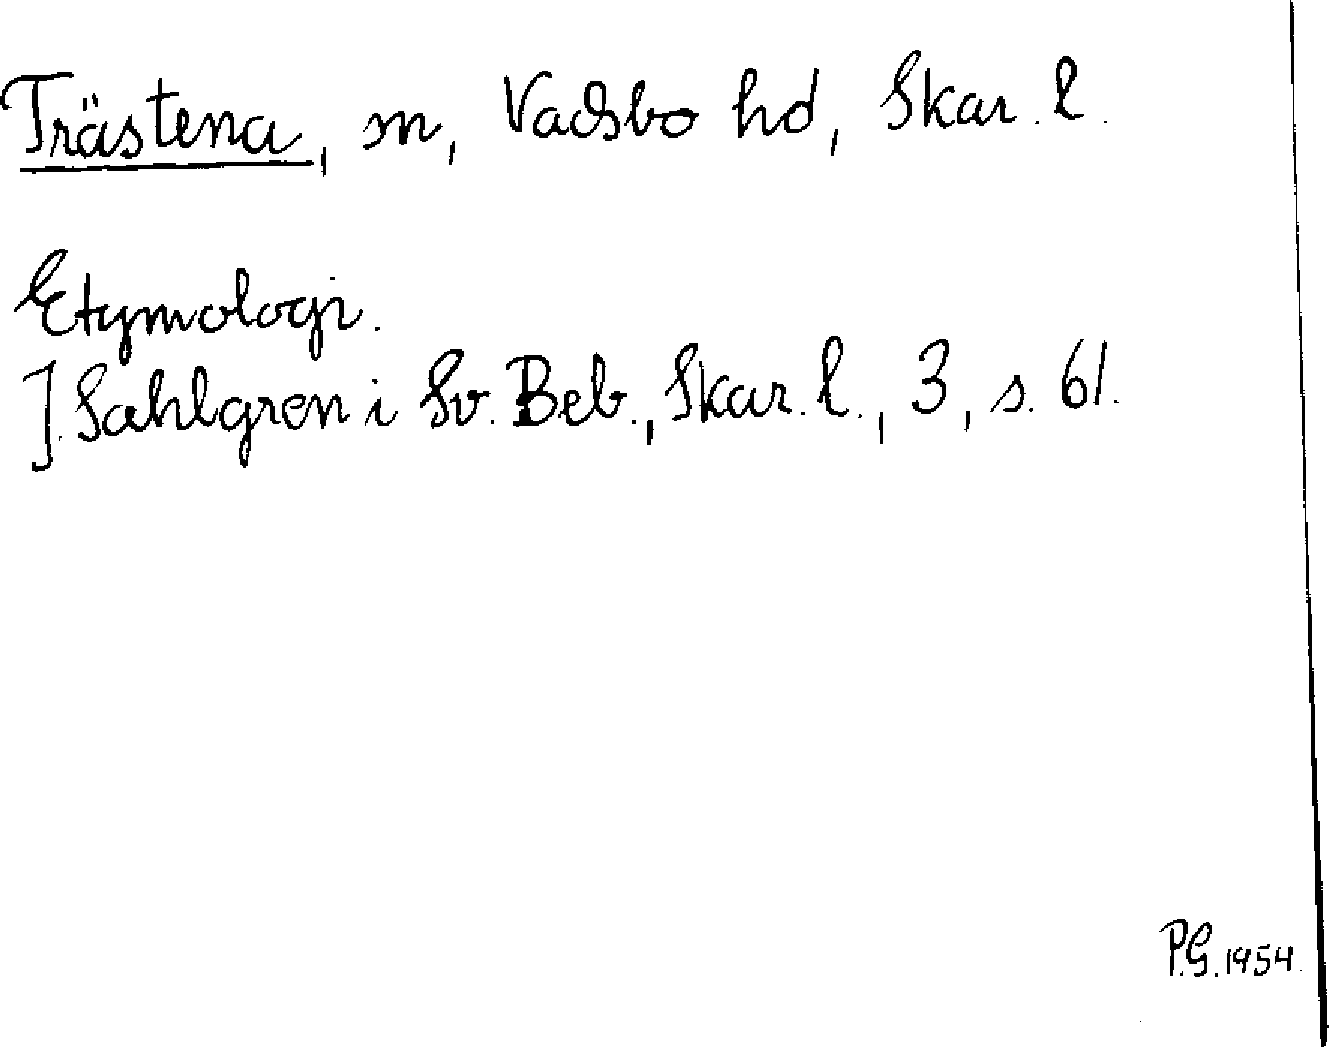 Trästena, sn, Vadsbo hd, Skar. l.
Etymologi.
J. Sahlgren i Sv. Beb., Skar. l., 3, s. 61.
P.G. 1954.